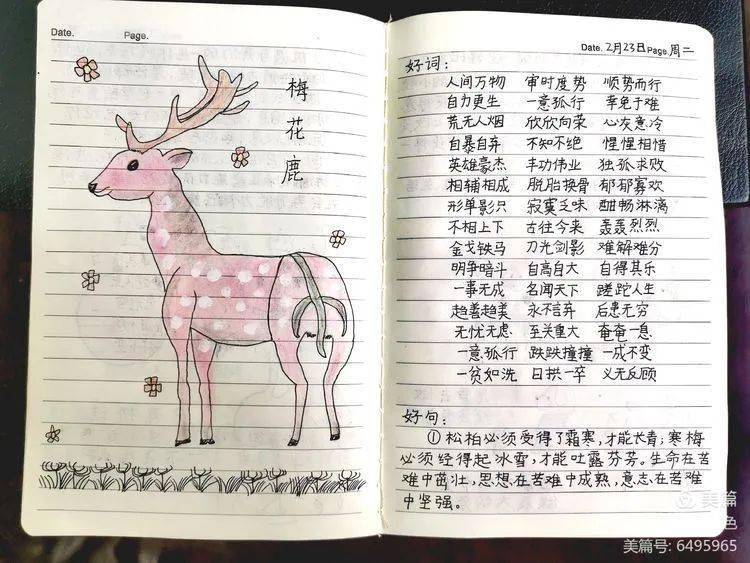 Date. Page.
梅
花
鹿
Date. 2月23日 Page. 周二
好词：
人间万物 审时度势 顺势而行
自力更生 一意孤行 幸免于难
荒无人烟 欣欣向荣 心灰意冷
自暴自弃 不知不绝 惺惺相惜
英雄豪杰 丰功伟业 独孤求败
相辅相成 脱胎换骨 郁郁寡欢
形单影只 寂寞乏味 酣畅淋漓
不相上下 古往今来 轰轰烈烈
金戈铁马 刀光剑影 难解难分
明争暗斗 自高自大 自得其乐
一事无成 名闻天下 蹉跎人生
趋善趋美 永不言弃 后患无穷
无忧无虑 至关重大 奄奄一息
一意孤行 跌跌撞撞 一成不变
一贫如洗 日拱一卒 义无反顾
好句：
①松柏必须受得了霜寒，才能长青；寒梅
必须经得起冰雪，才能吐露芬芳。生命在苦
难中茁壮，思想在苦难中成熟，意志在苦难
中坚强。
美篇
色
美篇号: 6495965